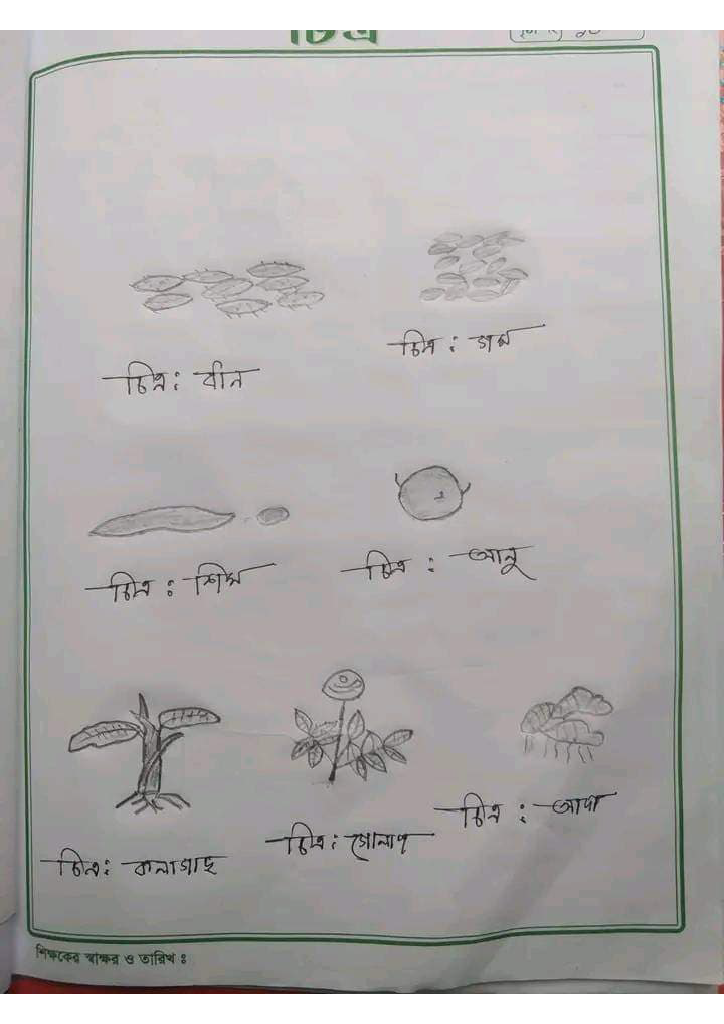 চিত্র
চিত্র : গম
চিত্র : বীন
চিত্র : আলু
চিত্র : শিম
চিত্র : আদা
চিত্র : গোলাপ
চিত্র : কলাগাছ
শিক্ষকের স্বাক্ষর ও তারিখ :